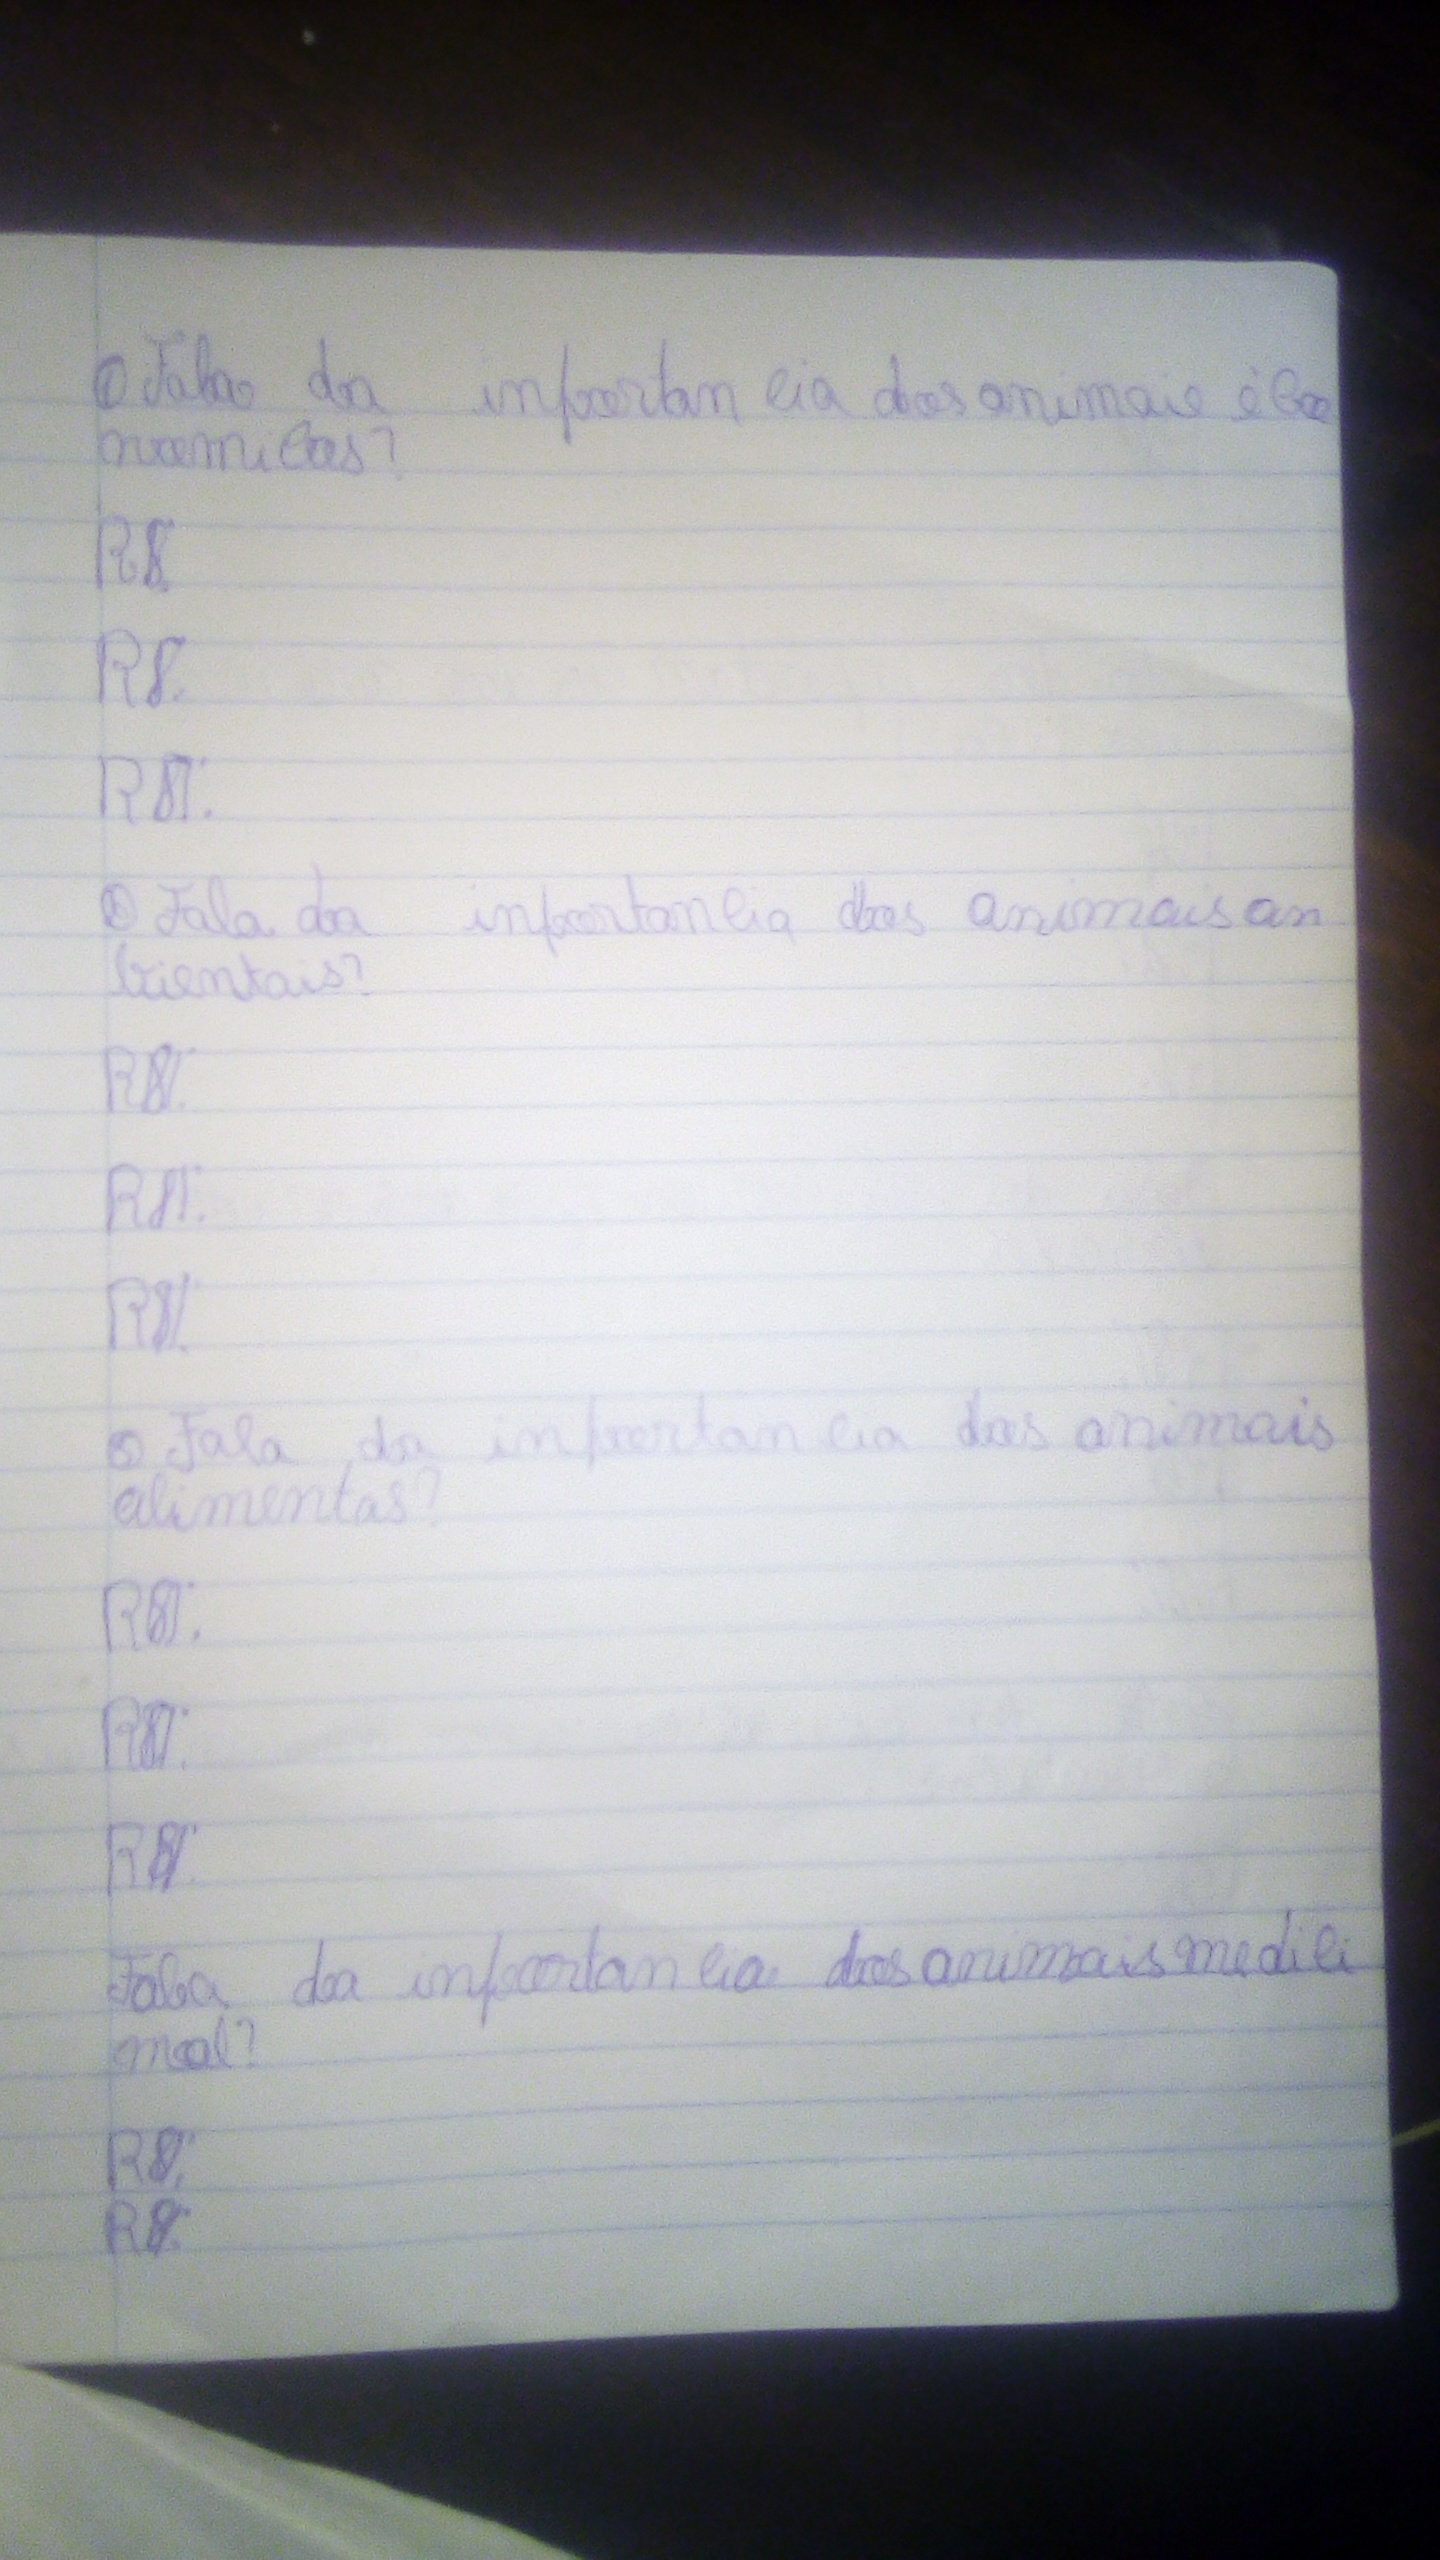 ① Fala da inportancia dos animais éco
nomicos?
R//:
R//:
R//:
② Fala da inportancia dos animais an
bientais?
R//:
R//:
R//:
③ Fala da inportancia dos animais
alimentas?
R//:
R//:
R//:
Fala da inportancia dos animais medici
nal?
R//:
R//: